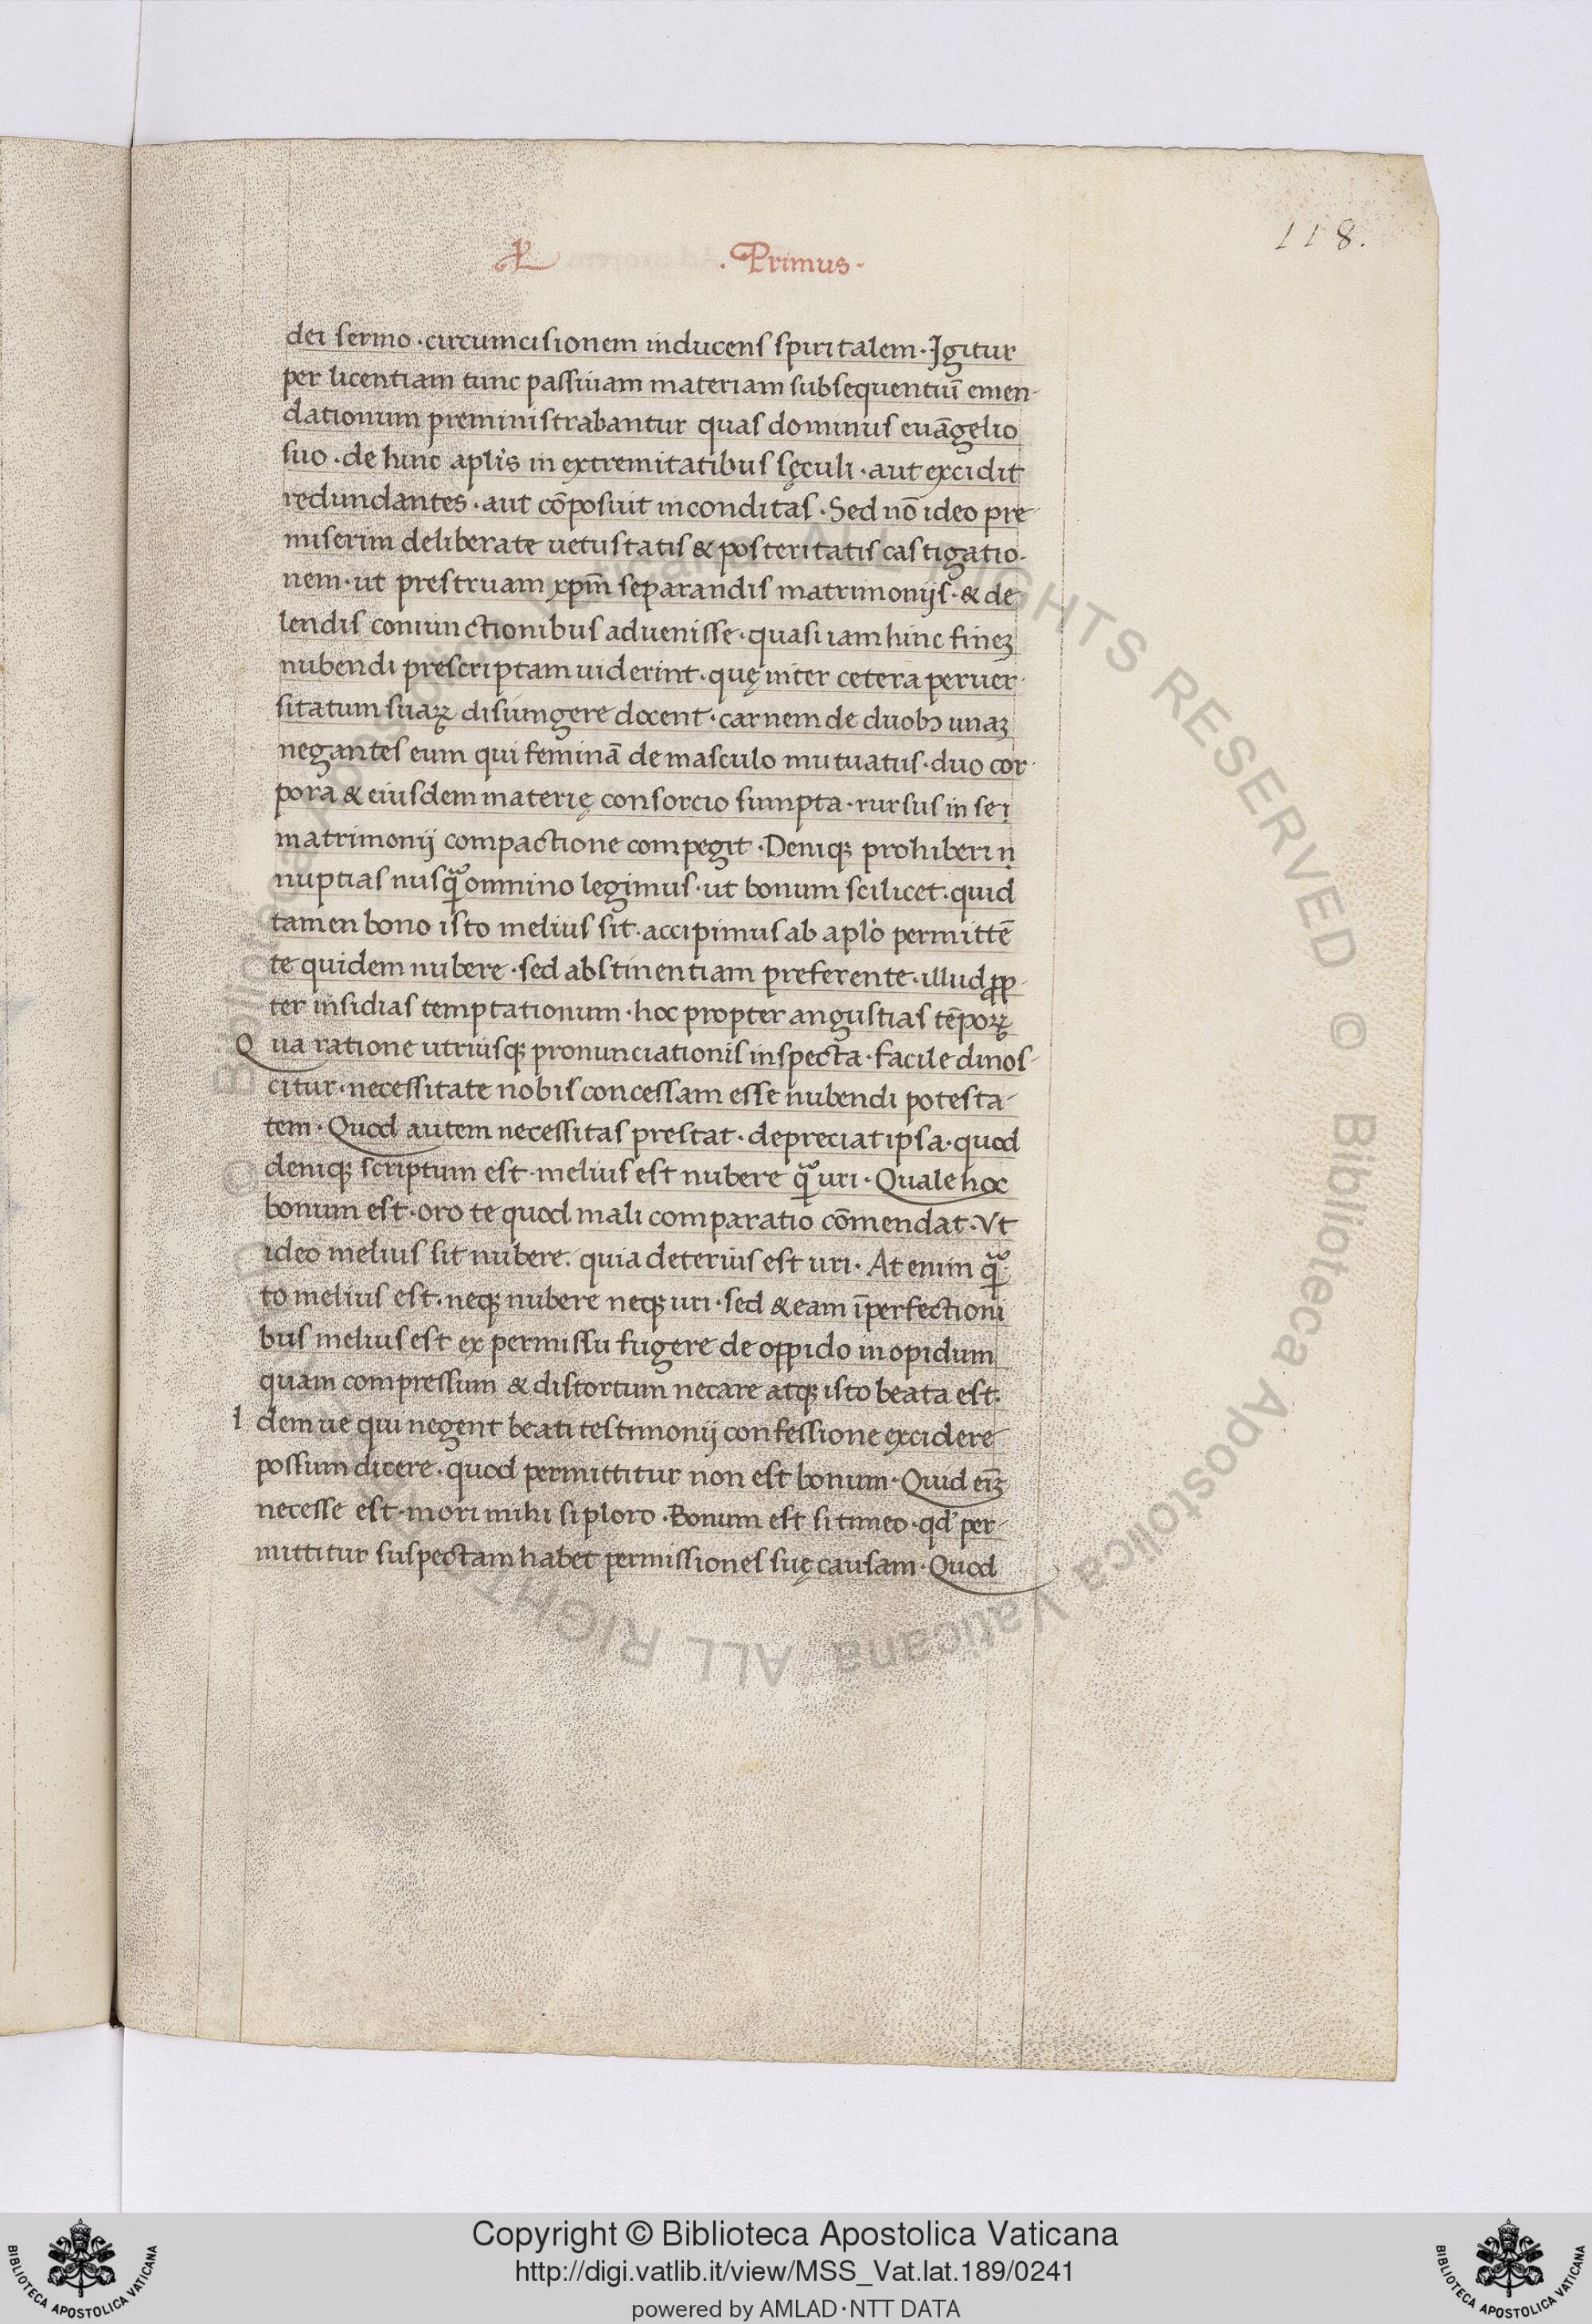 118.
L . Primus.
dei sermo · circumcisionem inducens spiritalem · Igitur
per licentiam tunc passiuam materiam subsequentiū emen-
dationum preministrabantur quas dominus euāgelio
suo · de hinc apl'is in extremitatibus sęculi · aut excidit
redundantes · aut cōposuit inconditas · Sed nō ideo pre-
miserim deliberate uetustatis & posteritatis castigatio-
nem · ut prestruam xpm̄ separandis matrimonijs · & de
lendis coniunctionibus aduenisse · quasi iam hinc fineʒ
nubendi prescriptam uiderint · quę inter cetera peruer-
sitatum suaꝝ disiungere docent · carnem de duobꝰ unaʒ
negantes eum qui feminā de masculo mutuatus · duo cor-
pora & eiusdem materię consorcio sumpta · rursus in se ı
matrimonij compactione compegit · Deniqʒ prohiberi n
nuptias nusq̃ omnino legimus · ut bonum scilicet · quid
tamen bono isto melius sit · accipimus ab apl'o permittē
te quidem nubere · sed abstinentiam preferente · illud ꝓp-
ter insidias temptationum · hoc propter angustias tēpoꝝ
Qua ratione utriusqʒ pronunciationis inspecta · facile dinos-
citur · necessitate nobis concessam esse nubendi potesta-
tem · Quod autem necessitas prestat · depreciat ipsa · quod
deniqʒ scriptum est · melius est nubere q̃ uri · Quale hoc
bonum est · oro te quod mali comparatio cōmendat · Vt
ideo melius sit nubere · quia deterius est uri · At enim q̃
to melius est · neqʒ nubere neqʒ uri · sed & eam īperfectioni
bus melius est ex permissu fugere de oppido in opidum
quam compressum & distortum necare atqʒ isto beata est ·
Idem ue qui negent beati testimonij confessione excidere
possum dicere · quod permittitur non est bonum · Quid eīʒ
necesse est · mori mihi si ploro · Bonum est si timeo · qd' per-
mittitur suspectam habet permissiones suę causam · Quod
Biblioteca Apostolica Vaticana ALL RIGHTS RESERVED © Biblioteca Apostolica Vaticana ALL RIGHTS RESERVED ©
Copyright © Biblioteca Apostolica Vaticana
http://digi.vatlib.it/view/MSS_Vat.lat.189/0241
powered by AMLAD·NTT DATA
BIBLIOTECA APOSTOLICA VATICANA
BIBLIOTECA APOSTOLICA VATICANA